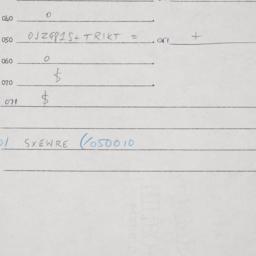 040 0
050 OJZ9P1S+TRIKT = . ori +
060 0
070 $
071 $
01 SXEWRE (/050010